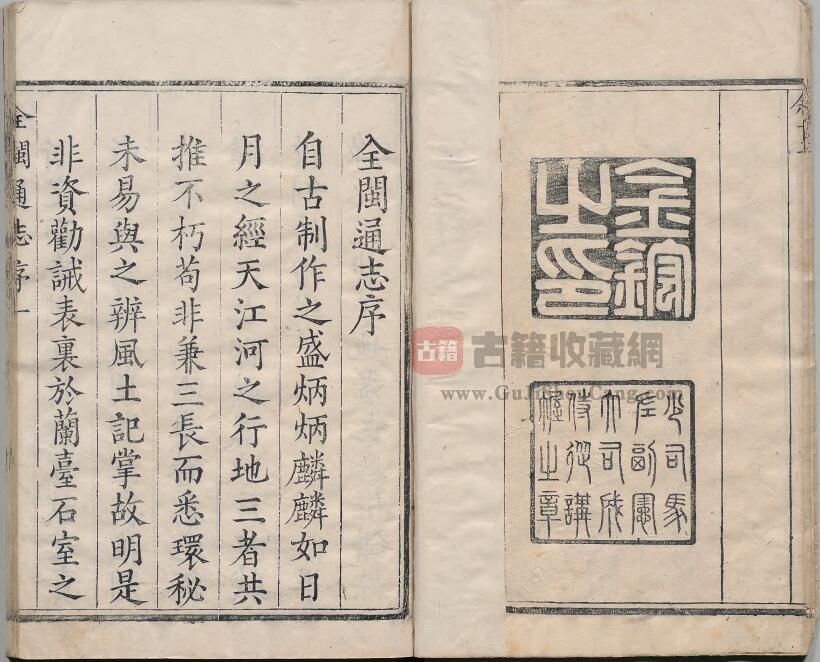 金鋐
之印
少司馬
左副憲
大司成
侍從講
幄之章
全閩通志序
自古制作之盛炳炳麟麟如日
月之經天江河之行地三者共
推不朽苟非兼三長而悉環秘
未易與之辨風土記掌故明是
非資勸誡表裏於蘭臺石室之
全閩通志 序 一
古籍
古籍收藏網
www.GuJiShouCang.com